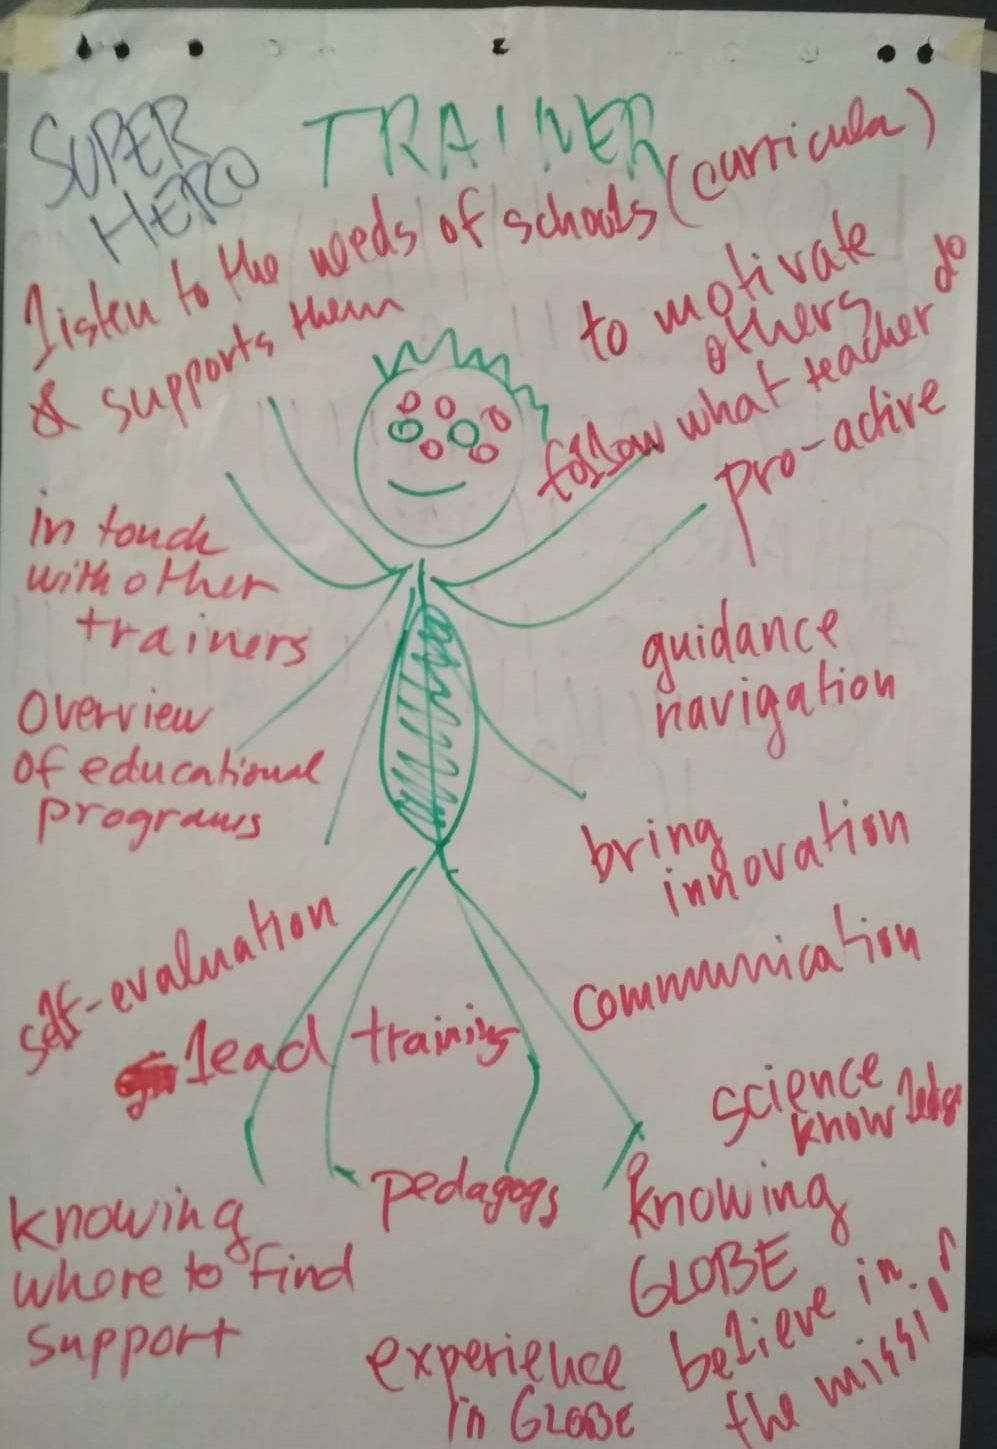 SUPER
HERO
TRAINER
Listen to the needs of schools (curricula)
& supports them
to motivate
others
follow what teacher do
pro-active
in touch
with other
trainers
overview
of educational
programs
guidance
navigation
bring
innovation
self-evaluation
communication
lead training
science
knowledge
pedagogy
knowing
where to find
support
knowing
GLOBE
experience
in GLOBE
believe in
the mission